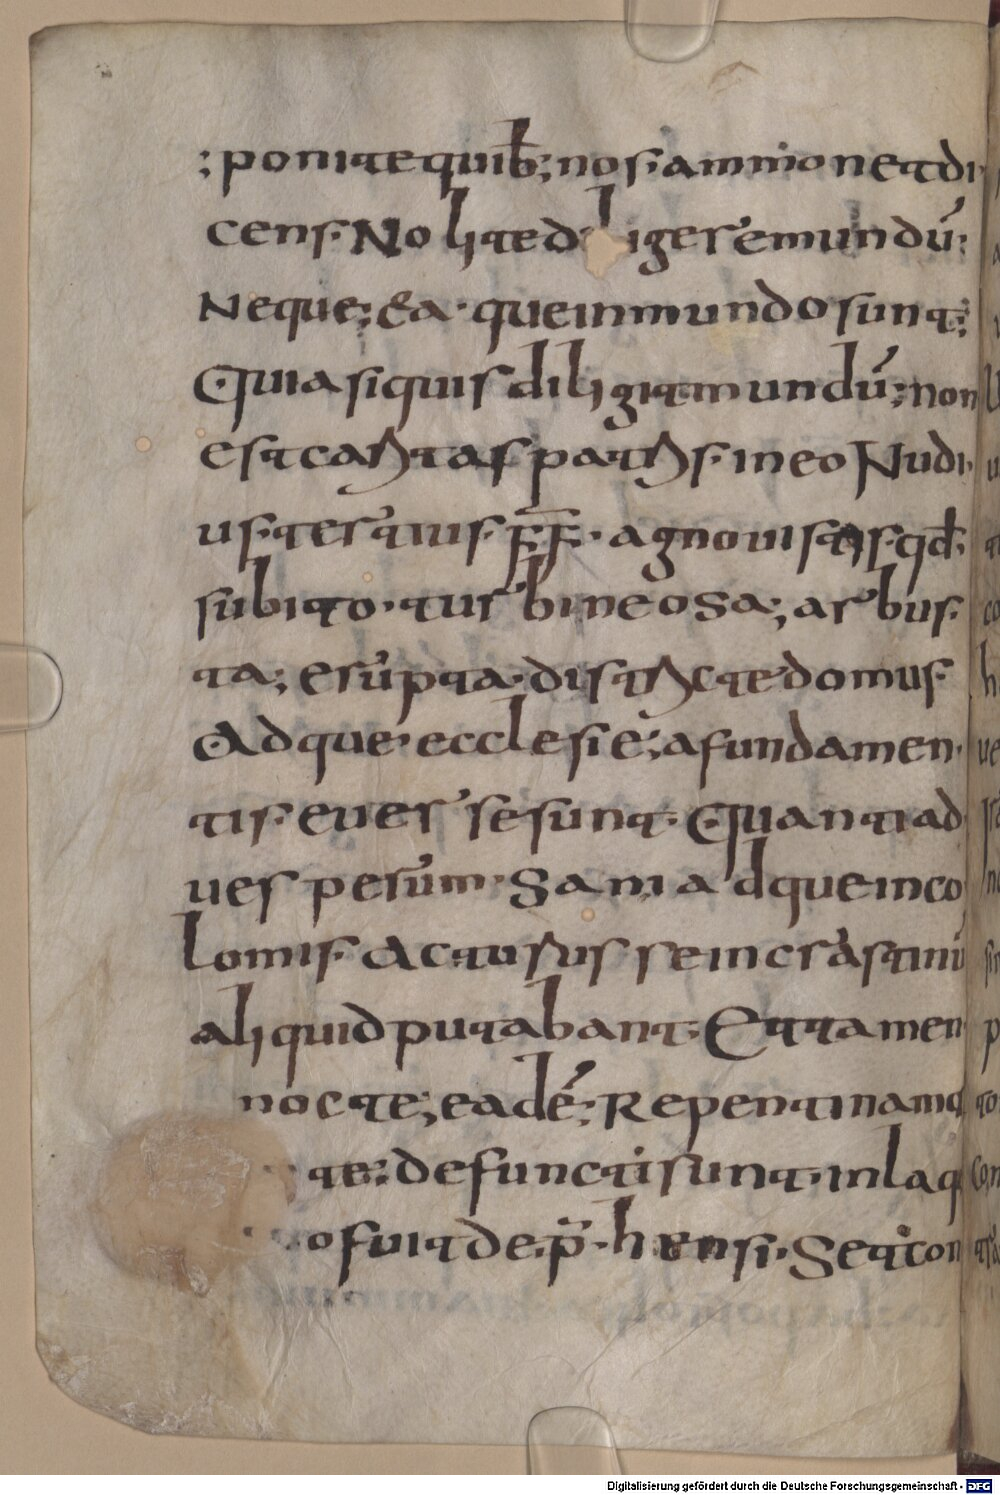 ; ponite quib; nos· ammonet di
cens· Nolite diligere mundū;
Neque; ea· que in mundo sunt;
Quia si quis diligit mundū; non
est caritas patris· in eo Nudi·
us· tertius· F̄F̄· agnouistis· qđ·
subito· turbineosa; arbus·
ta; erupta· districte domus
Adque· ecclesie; a fundamen·
tis· euerse sunt· Quanti ad
uesperum· Sani adque inco
lomis· Acturus se in crastinū
aliquid putabant· Et tamen·
nocte; eadē; Repentina mo
te; defuncti sunt· in laq
o fuit de·p̄·hensi· Set con
Digitalisierung gefördert durch die Deutsche Forschungsgemeinschaft - DFG